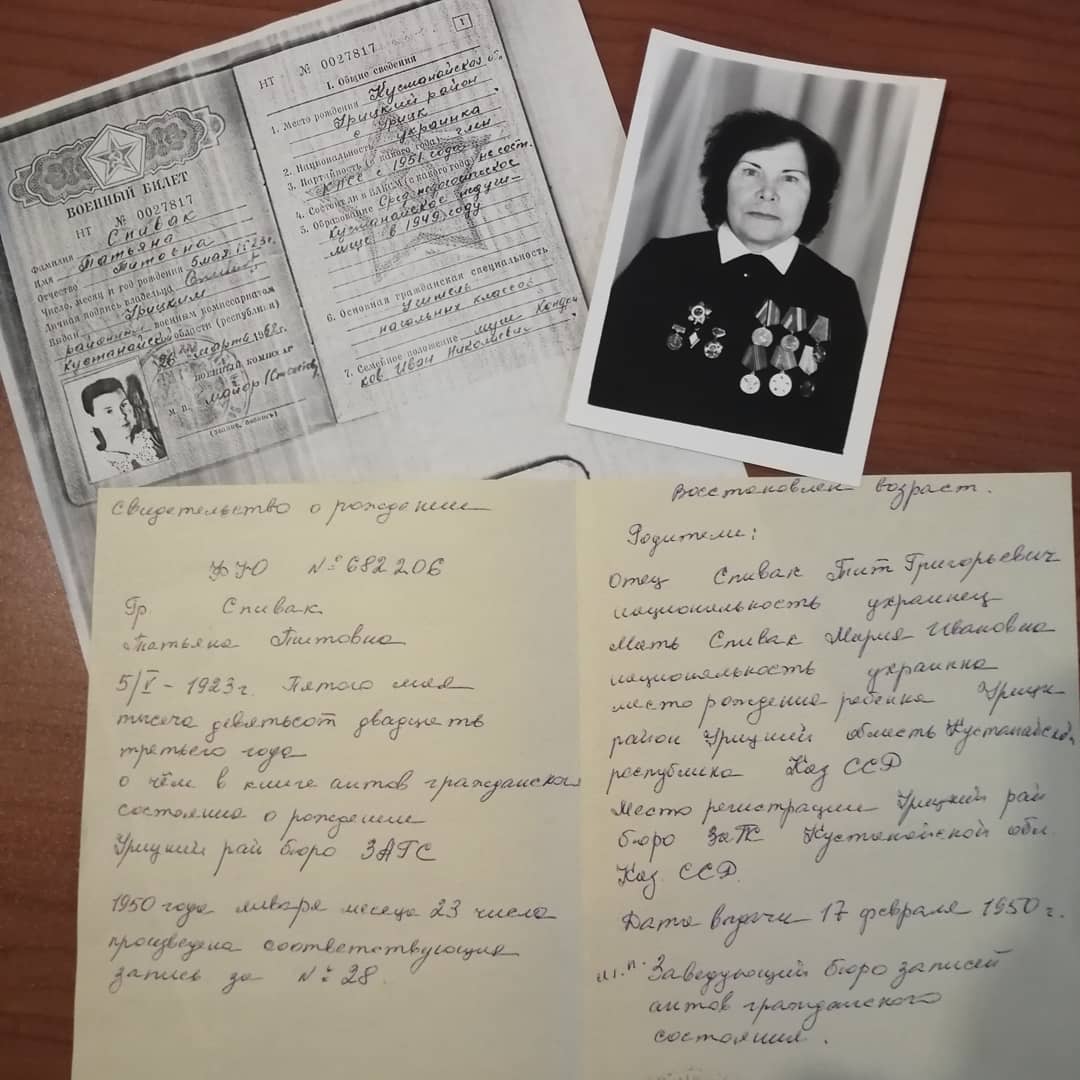 ВОЕННЫЙ БИЛЕТ
НТ № 0027817
Фамилия Спивак
Имя Татьяна
Отчество Титовна
Число, месяц и год рождения 5 мая 1923 г.
Личная подпись владельца
Выдан Урицким
районным военным комиссариатом
Кустанайской области (республики)
26 марта 1968 г.
ВОЕННЫЙ КОМИССАР
М. П. майор
(звание, подпись)
НТ № 0027817
1
I. Общие сведения
1. Место рождения Кустанайская об.
Урицкий район
с. Урицк
2. Национальность украинка
3. Партийность (с какого года) член
КПСС с 1951 года
4. Состоял ли в ВЛКСМ (с какого года) не сост.
5. Образование Сред. педагогическое
Кустанайское педучи-
лище в 1949 году
6. Основная гражданская специальность
учитель
начальных классов
7. Семейное положение муж
ков Иван Николаевич
Свидетельство о рождении
№ 682206
Гр. Спивак
Татьяна Титовна
5/V - 1923 г. Пятого мая
тысяча девятьсот двадцать
третьего года
о чём в книге актов гражданского
состояния о рождении
Урицкий рай бюро ЗАГС
1950 года января месяца 23 числа
произведена соответствующая
запись за № 28.
Восстановлен возраст.
Родители:
Отец Спивак Тит Григорьевич
национальность украинец
Мать Спивак Мария Ивановна
национальность украинка
место рождения ребенка Урицк
район Урицкий область Кустанайской
республика Каз ССР
Место регистрации Урицкий рай
бюро ЗАГС Кустанайской обл.
Каз. ССР.
Дата выдачи 17 февраля 1950 г.
м.п. Заведующий бюро записей
актов гражданского
состояния.